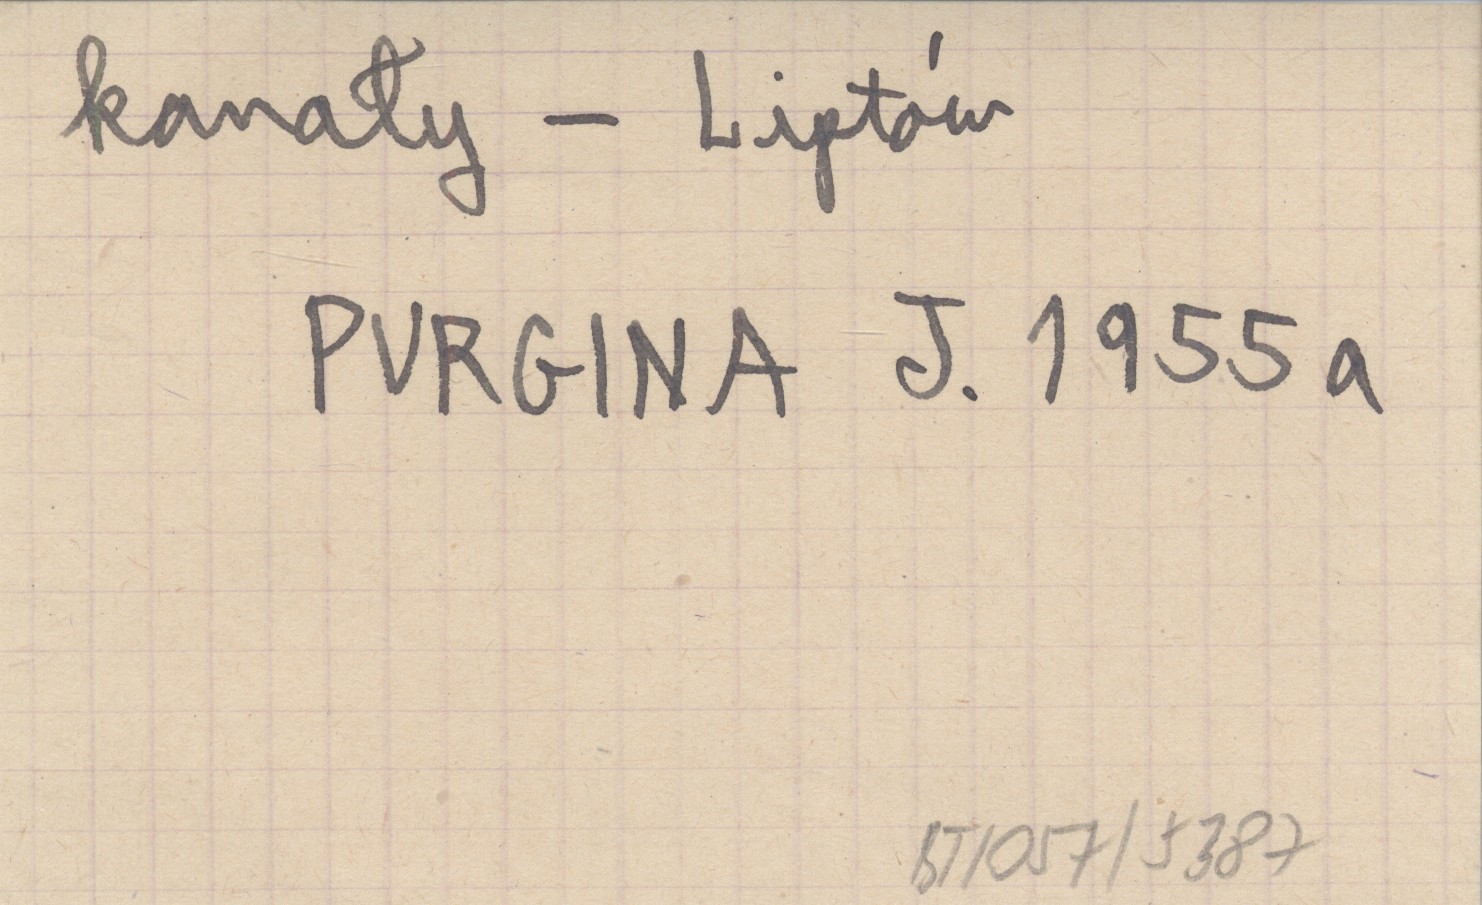 kanały – Liptów
PURGINA J. 1955a
BT/057/5387